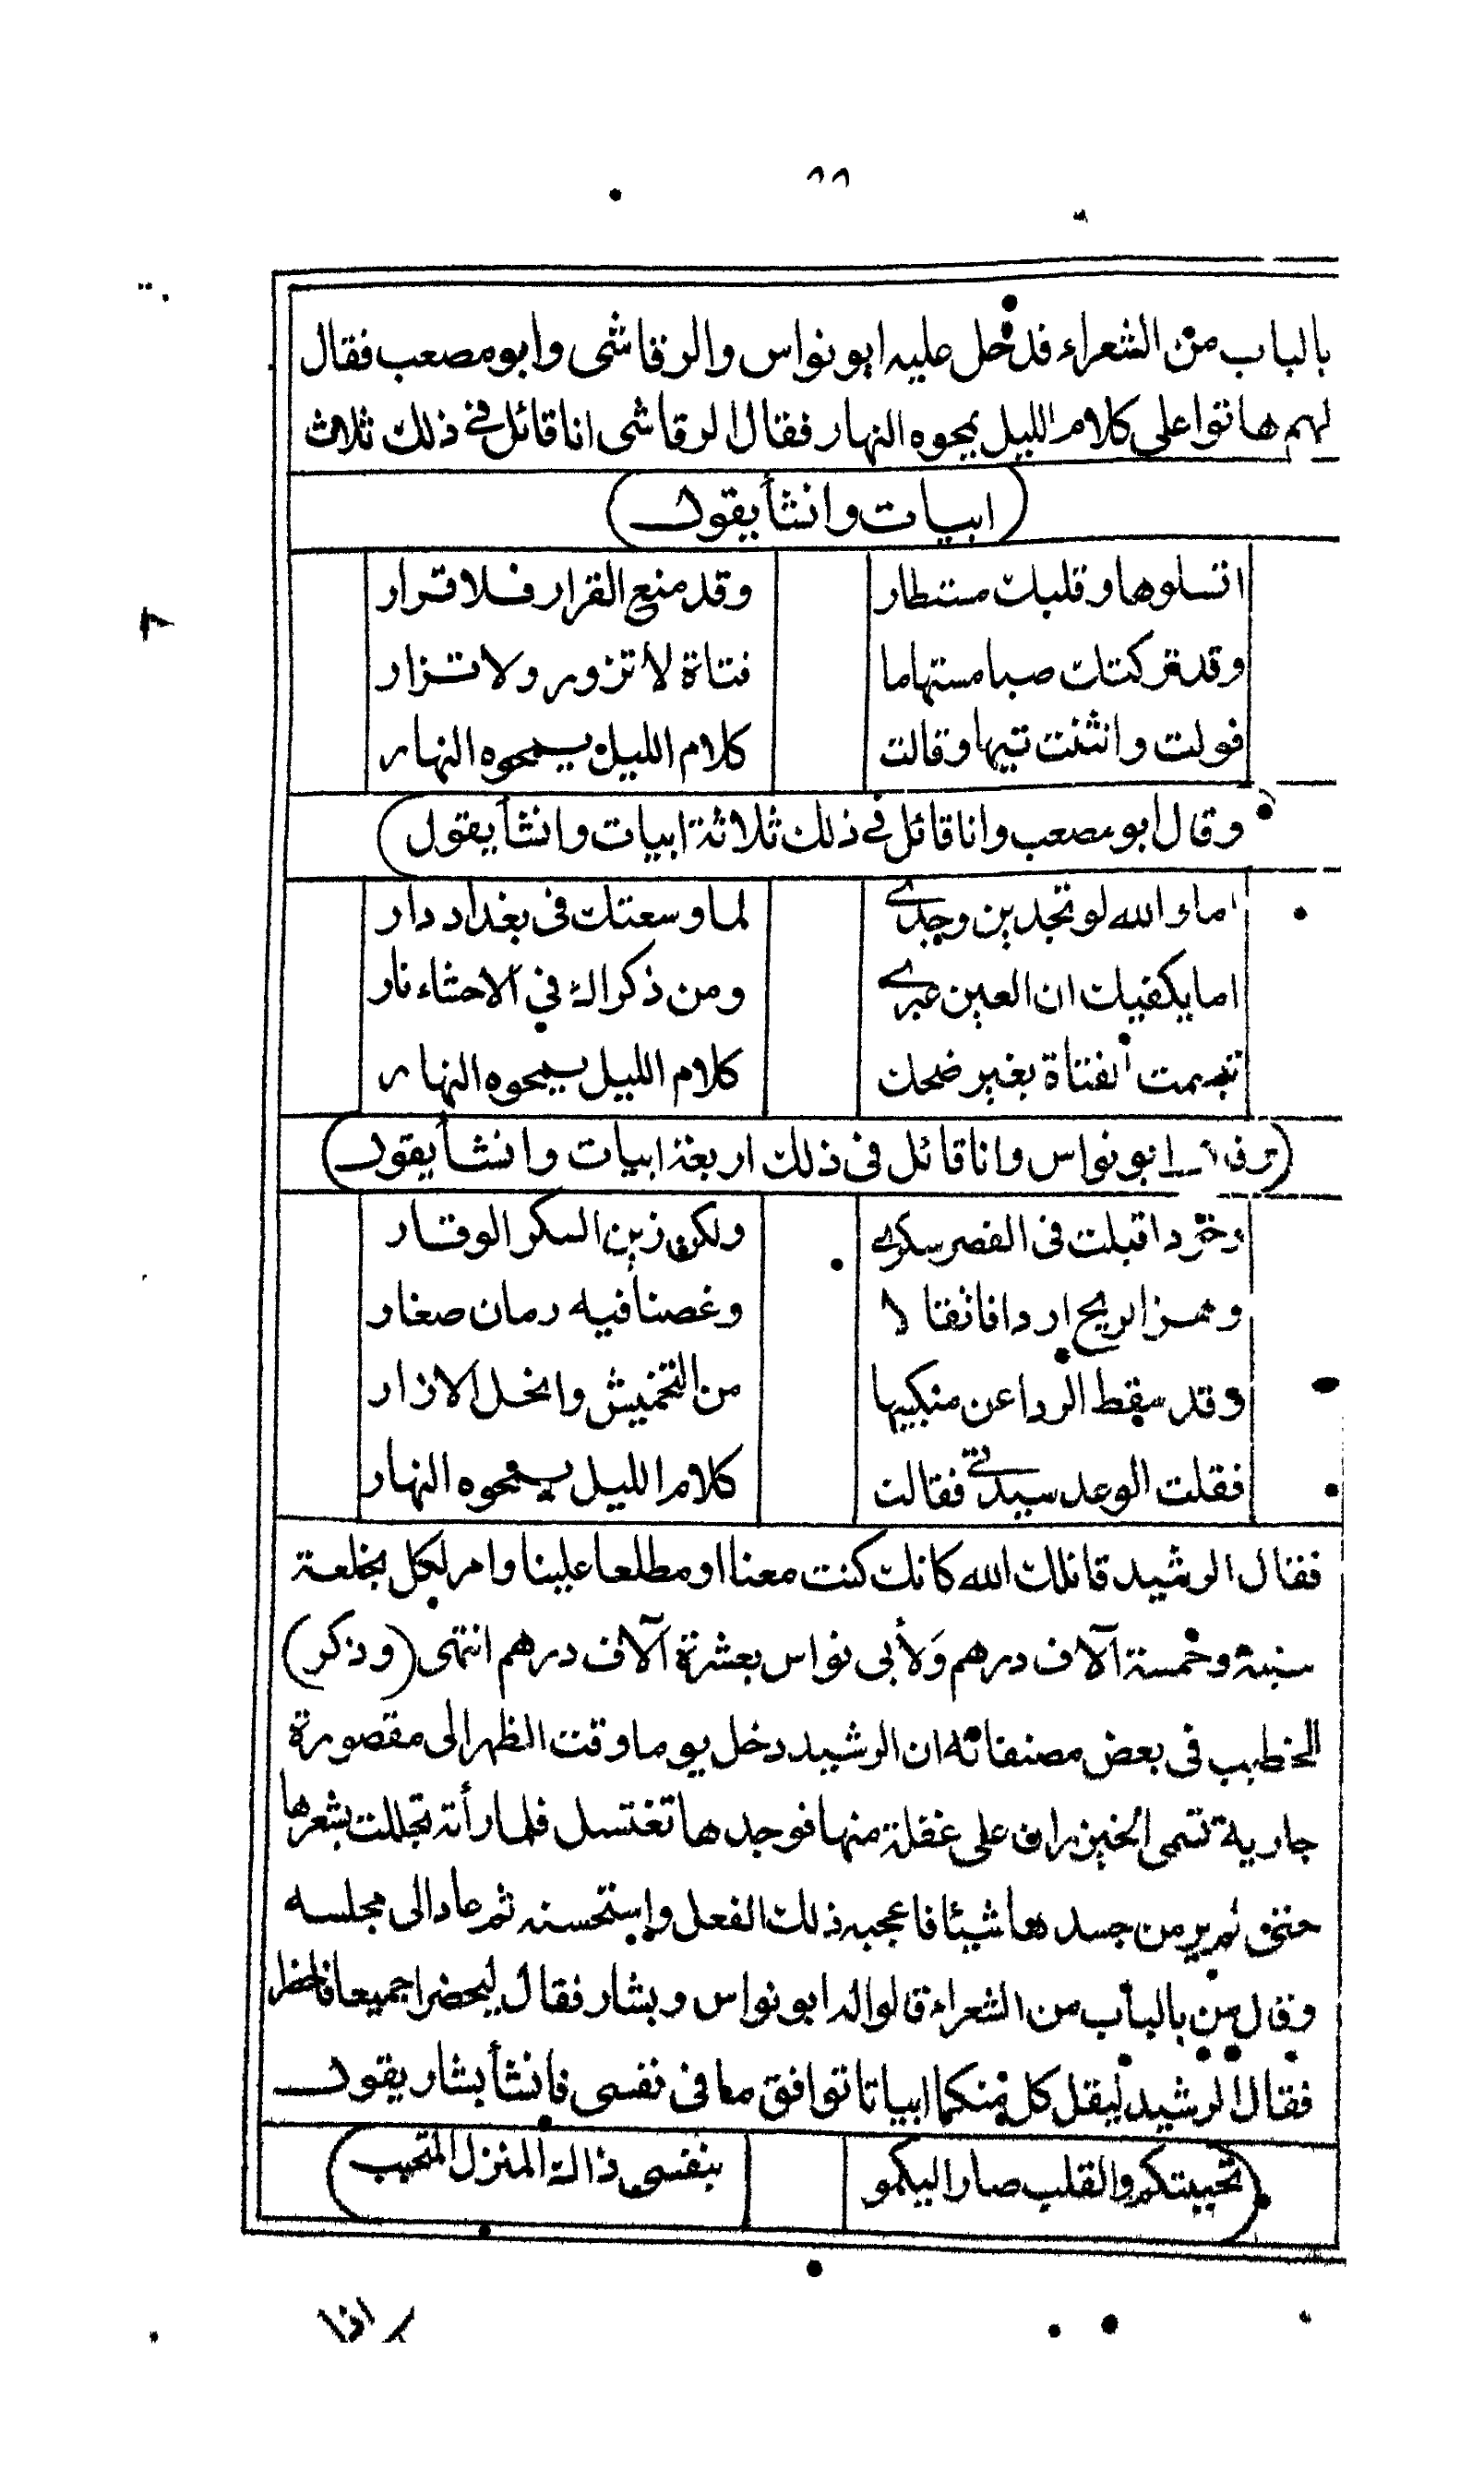 ٨٨
بالباب من الشعراء فدخل عليه ابو نواس والرقاشى وابو مصعب فقال
لهم هاتوا على كلام الليل يمحوه النهار فقال الرقاشى انا قائل فى ذلك ثلاث
(ابيات وانشأ يقول)
اتسلوها وقلبك مستطار وقد منع القرار فلا قرار
وقد تركتك صبا مستهاما فتاة لا تزور ولا تزار
فولت وانثنت تيها وقالت كلام الليل يمحوه النهار
وقال ابو مصعب وانا قائل فى ذلك ثلاثة ابيات وانشأ يقول)
اما والله لو تجدين وجدى لما وسعتك فى بغداد دار
اما يكفيك ان العين عبرى ومن ذكراك فى الاحشاء نار
تبسمت الفتاة بغير ضحك كلام الليل يمحوه النهار
ابو نواس وانا قائل فى ذلك اربعة ابيات وانشأ يقول)
وخود اقبلت فى القصر سكرى ولكن زين السكر الوقار
وهز الريح اردافا ثقالا وغصنا فيه رمان صغار
وقد سقط الردا عن منكبيها من التخميش وانحل الازار
فقلت الوعد سيدتى فقالت كلام الليل يمحوه النهار
فقال الرشيد قاتلك الله كانك كنت معنا او مطلعا علينا وامر لكل بخلعة
سنية وخمسة آلاف درهم ولأبى نواس بعشرة آلاف درهم انتهى (وذكر)
الخطيب فى بعض مصنفاته ان الرشيد دخل يوما وقت الظهر الى مقصورة
جارية تسمى الخيزران على غفلة منها فوجدها تغتسل فلما رأته تجللت بشعرها
حتى لم ير من جسدها شيئا فاعجبه ذلك الفعل واستحسنه ثم عاد الى مجلسه
وقال من بالباب من الشعراء قالوا له ابو نواس وبشار فقال ليحضرا جميعا فاحضرا
فقال الرشيد ليقل كل منكما ابياتا توافق ما فى نفسى فانشأ بشار يقول
(تحببتكم والقلب صار اليكمو بنفسى ذاك المنزل المتحبب)